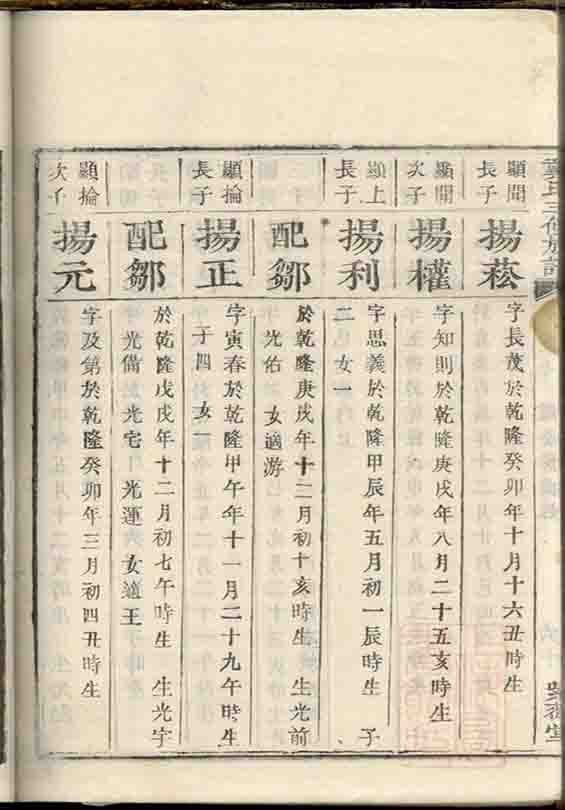 顯聞
長子
揚菘
字長茂於乾隆癸卯年十月十六丑時生
顯開
次子
揚權
字知則於乾隆庚戌年八月二十五亥時生
顯上
長子
揚利
字思義於乾隆甲辰年五月初一辰時生 子
二 女一
配鄒
於乾隆庚戌年十二月初十亥時生 生光前
光佑 女適游
顯掄
長子
揚正
字寅春於乾隆甲午年十一月二十九午時生
子四 女一
配鄒
於乾隆戊戌年十二月初七午時生 生光宇
光備 光宅 光運 女適王
顯掄
次子
揚元
字及第於乾隆癸卯年三月初四丑時生